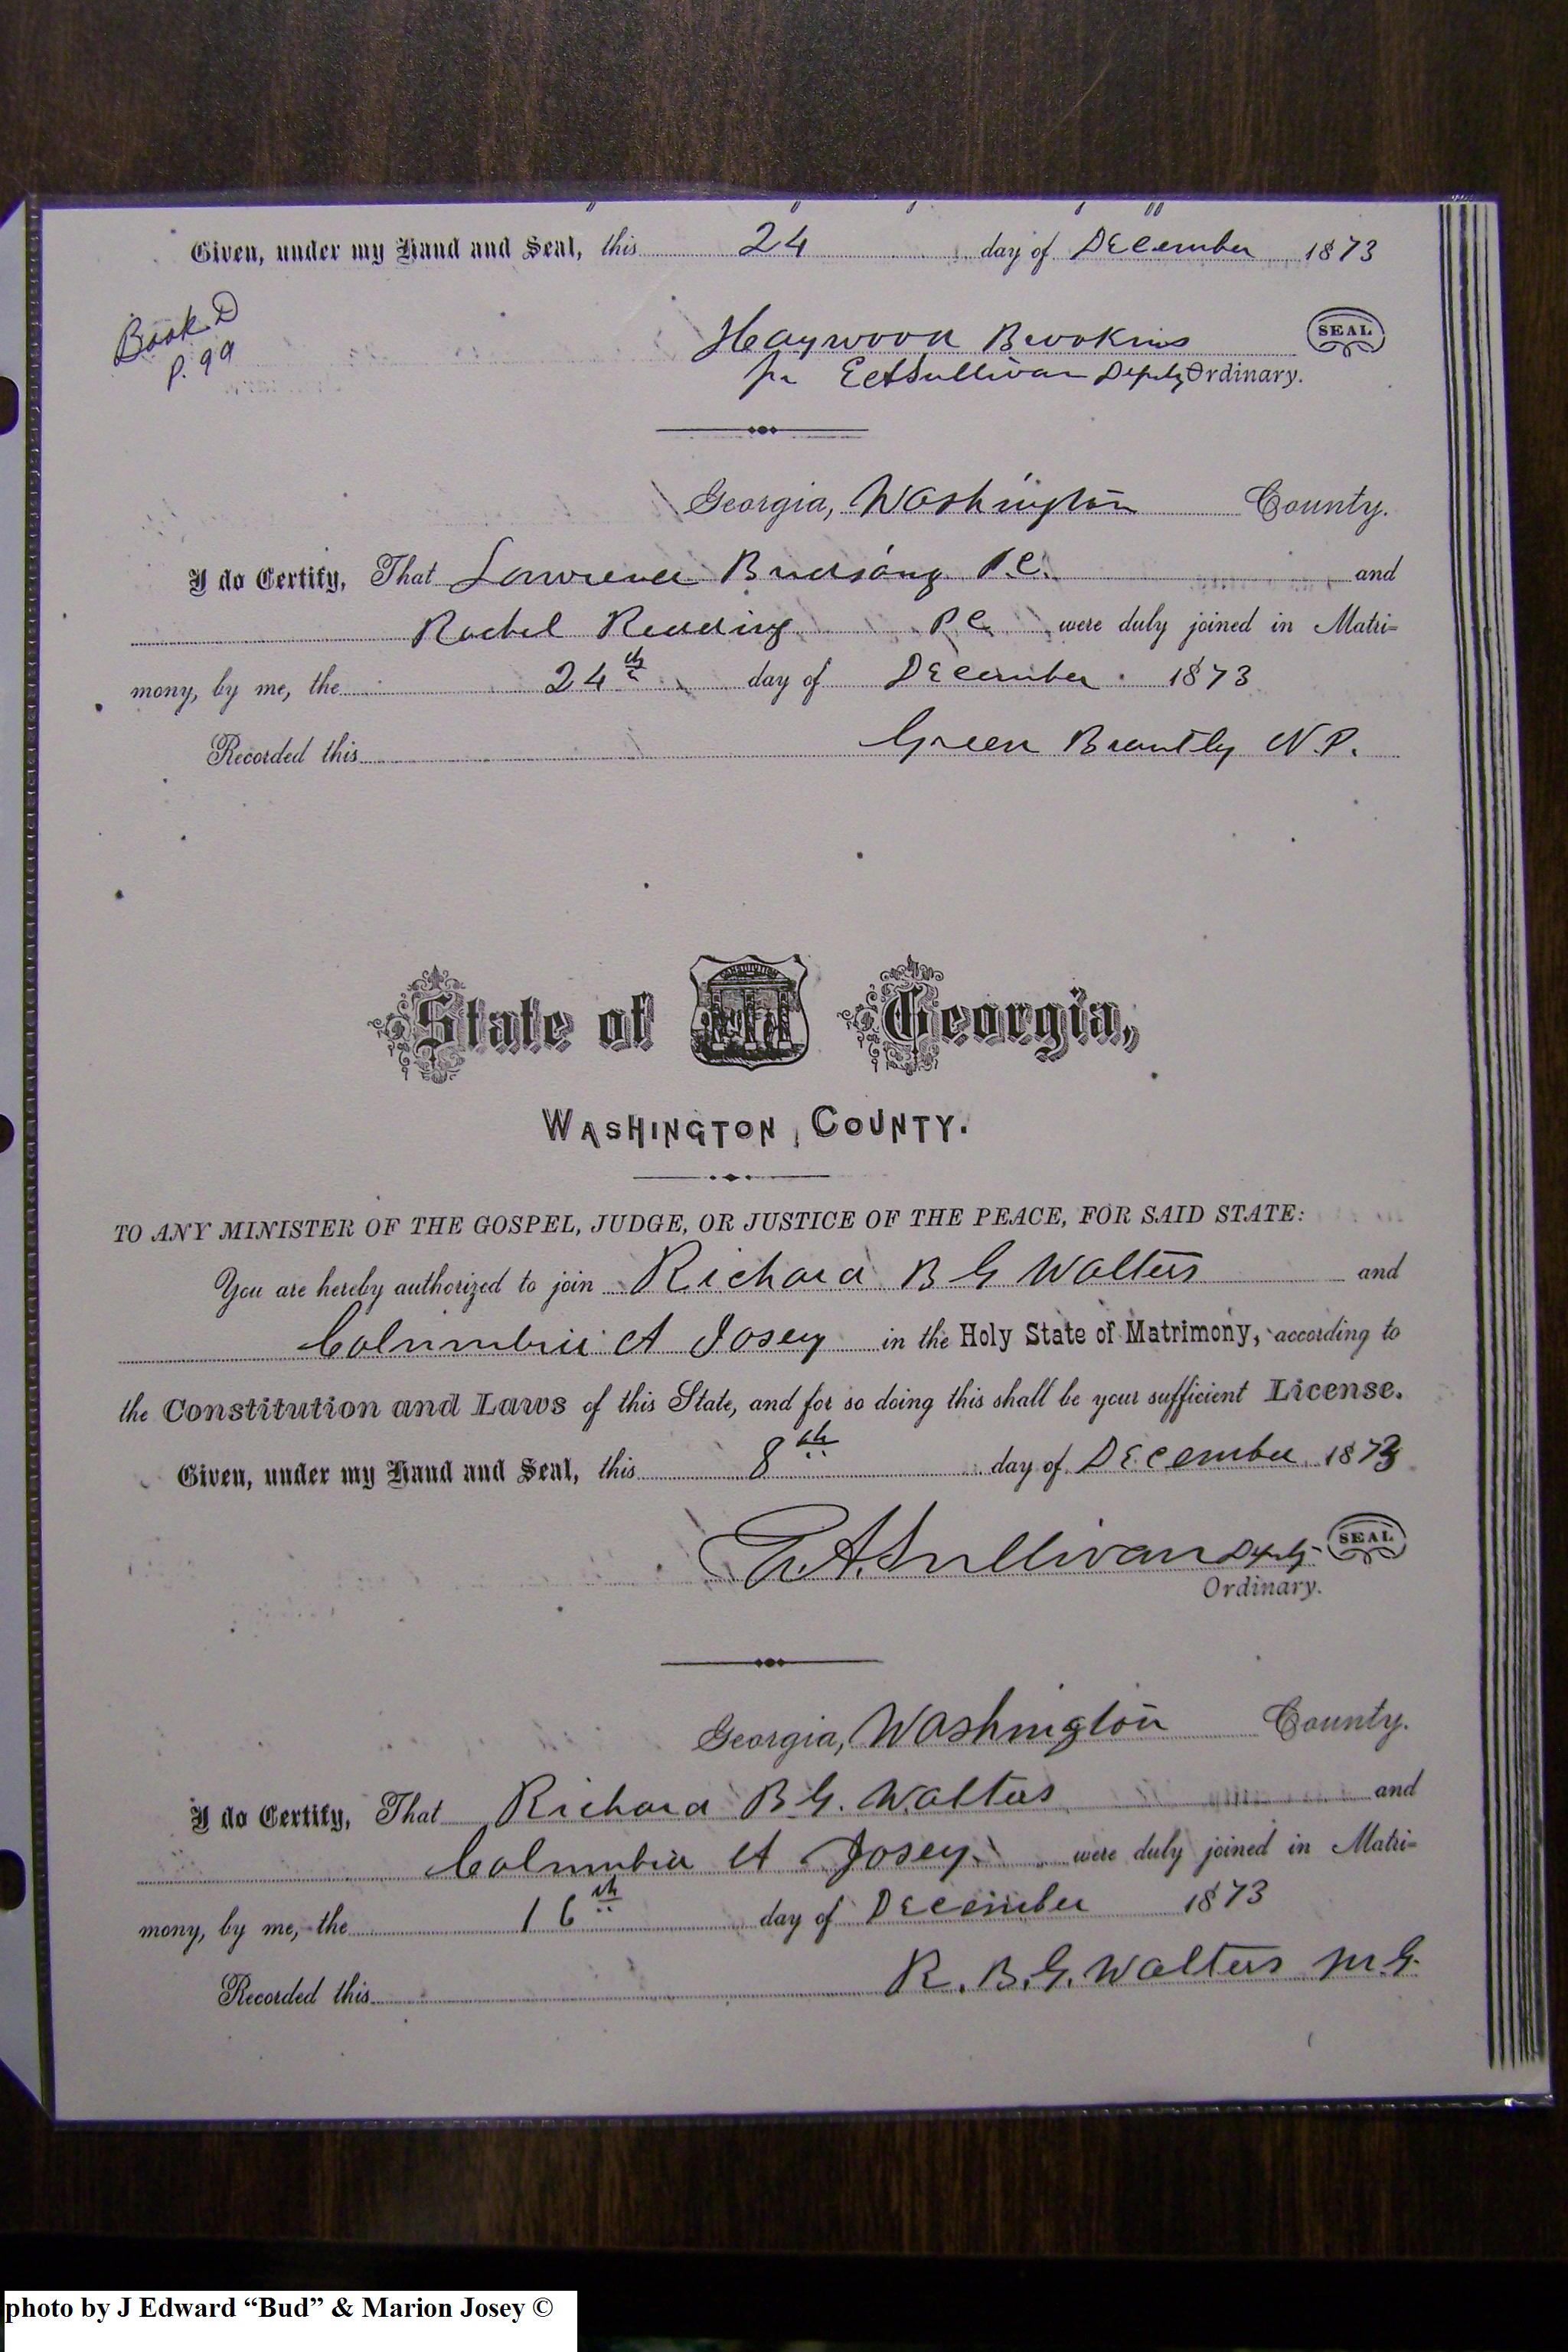 Given, under my Hand and Seal, this 24 day of December 1873
Book D
P. 99
Haywood Brookins SEAL
pr E A Sullivan Deputy Ordinary.
Georgia, Washington County.
I do Certify, That Lawrence Birdsong P.C. and
Rachel Redding P C were duly joined in Matri=
mony, by me, the 24th day of December 1873
Recorded this Green Brantly N.P.
State of Georgia,
CONSTITUTION
WASHINGTON COUNTY.
TO ANY MINISTER OF THE GOSPEL, JUDGE, OR JUSTICE OF THE PEACE, FOR SAID STATE:
You are hereby authorized to join Richard B G Walters and
Columbia A Josey in the Holy State of Matrimony, according to
the Constitution and Laws of this State, and for so doing this shall be your sufficient License.
Given, under my Hand and Seal, this 8th day of December 1873
E. A. Sullivan Deputy SEAL
Ordinary.
Georgia, Washington County.
I do Certify, That Richard B G. Walters and
Columbia A Josey were duly joined in Matri=
mony, by me, the 16th day of December 1873
Recorded this R. B. G. Walters M.G.
photo by J Edward “Bud” & Marion Josey ©